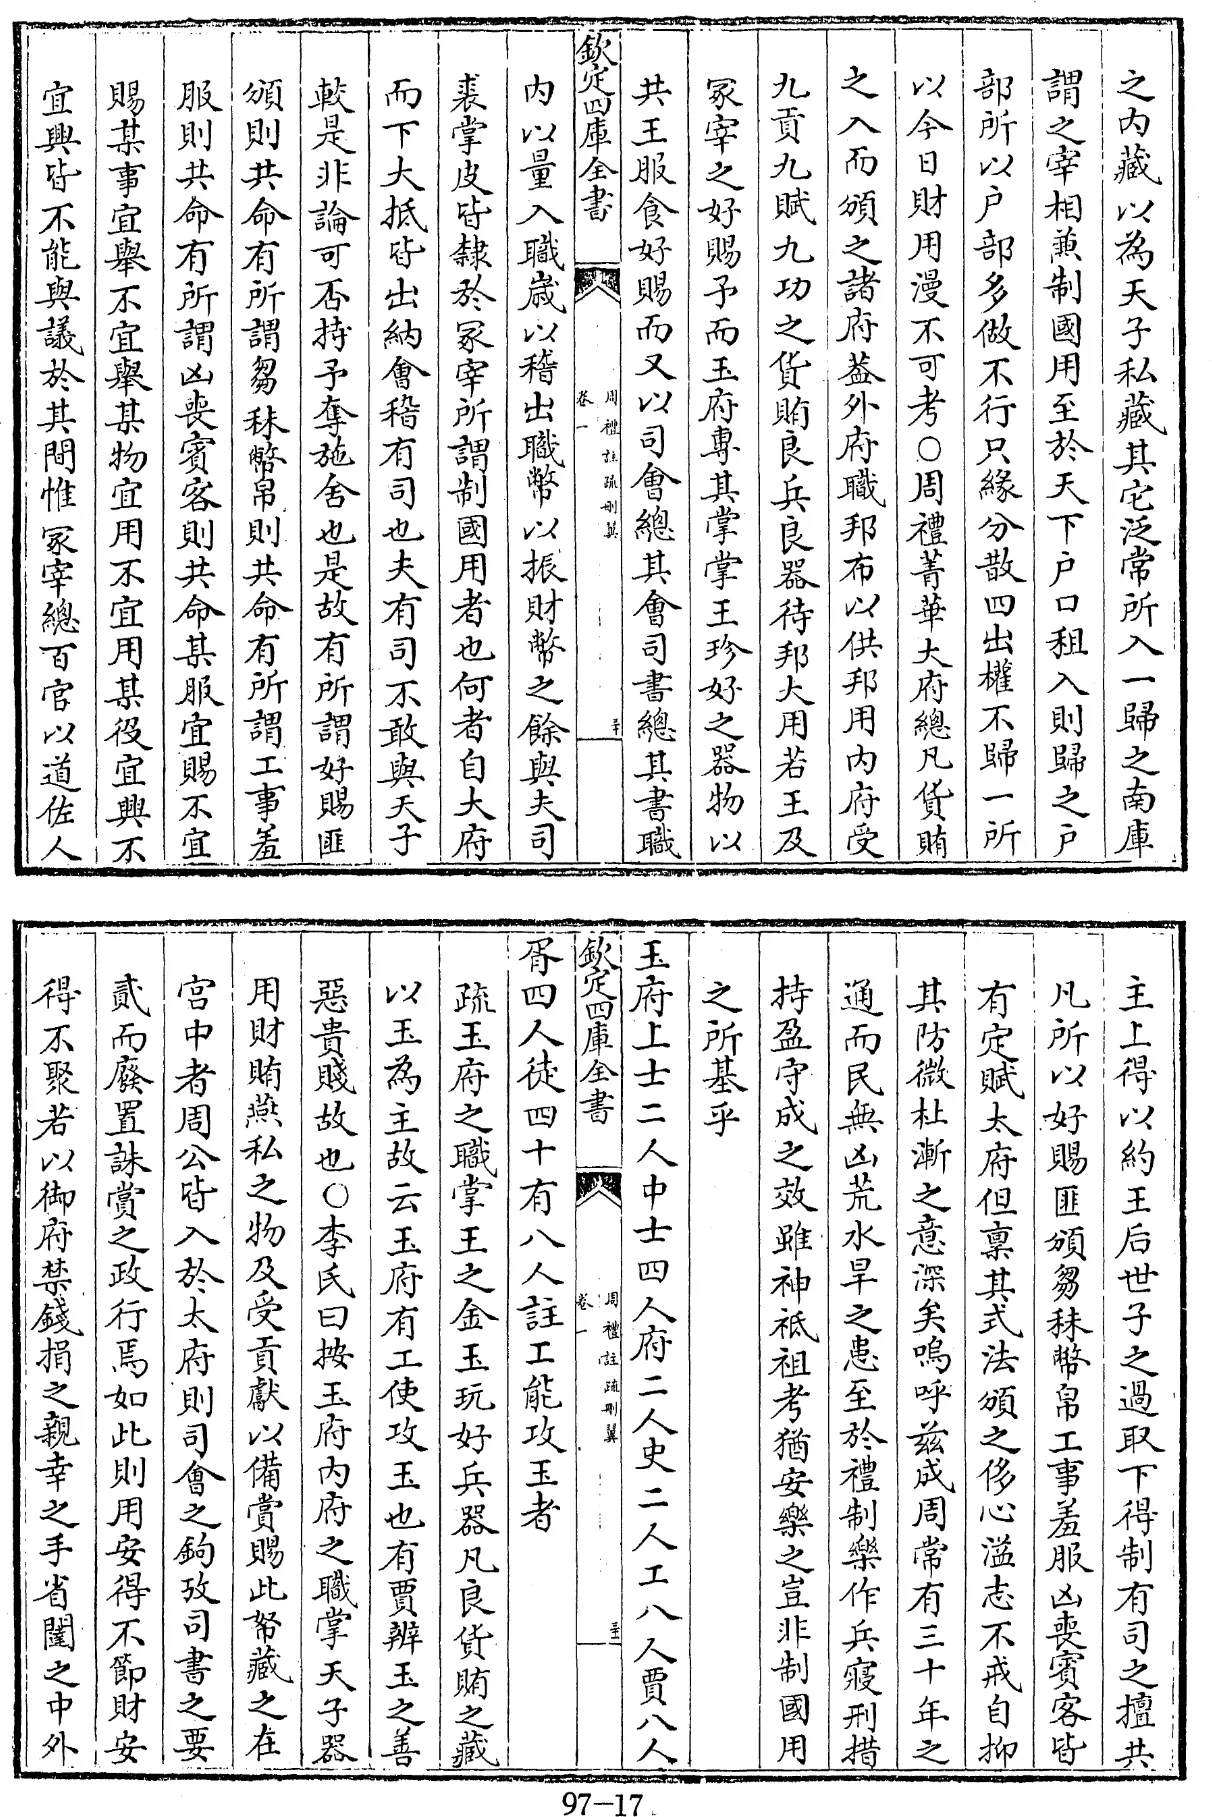 之内藏以為天子私藏其它泛常所入一歸之南庫
謂之宰相兼制國用至於天下户口租入則歸之户
部所以户部多做不行只緣分散四出權不歸一所
以今日財用漫不可考○周禮菁華大府總凡貨賄
之入而頒之諸府葢外府職邦布以供邦用内府受
九貢九賦九功之貨賄良兵良器待邦大用若王及
冢宰之好賜予而玉府專其掌掌王珍好之器物以
共王服食好賜而又以司會總其會司書總其書職
欽定四庫全書
周禮註疏刪翼
卷一
三十
内以量入職歲以稽出職幣以振財幣之餘與夫司
裘掌皮皆隸於冢宰所謂制國用者也何者自大府
而下大抵皆出納會稽有司也夫有司不敢與天子
較是非論可否持予奪施舍也是故有所謂好賜匪
頒則共命有所謂芻秣幣帛則共命有所謂工事羞
服則共命有所謂凶喪賓客則共命某服宜賜不宜
賜某事宜舉不宜舉某物宜用不宜用某役宜興不
宜興皆不能與議於其間惟冢宰總百官以道佐人
主上得以約王后世子之過取下得制有司之擅共
凡所以好賜匪頒芻秣幣帛工事羞服凶喪賓客皆
有定賦太府但稟其式法頒之侈心溢志不戒自抑
其防微杜漸之意深矣嗚呼兹成周常有三十年之
通而民無凶荒水旱之患至於禮制樂作兵寢刑措
持盈守成之效雖神祗祖考猶安樂之豈非制國用
之所基乎
玉府上士二人中士四人府二人史二人工八人賈八人
欽定四庫全書
周禮註疏刪翼
卷一
三十一
胥四人徒四十有八人註工能攻玉者
疏玉府之職掌王之金玉玩好兵器凡良貨賄之藏
以玉為主故云玉府有工使攻玉也有賈辨玉之善
惡貴賤故也○李氏曰按玉府内府之職掌天子器
用財賄燕私之物及受貢獻以備賞賜此帑藏之在
宫中者周公皆入於太府則司會之鉤攷司書之要
貳而廢置誅賞之政行焉如此則用安得不節財安
得不聚若以御府禁錢捐之親幸之手省闥之中外
97-17